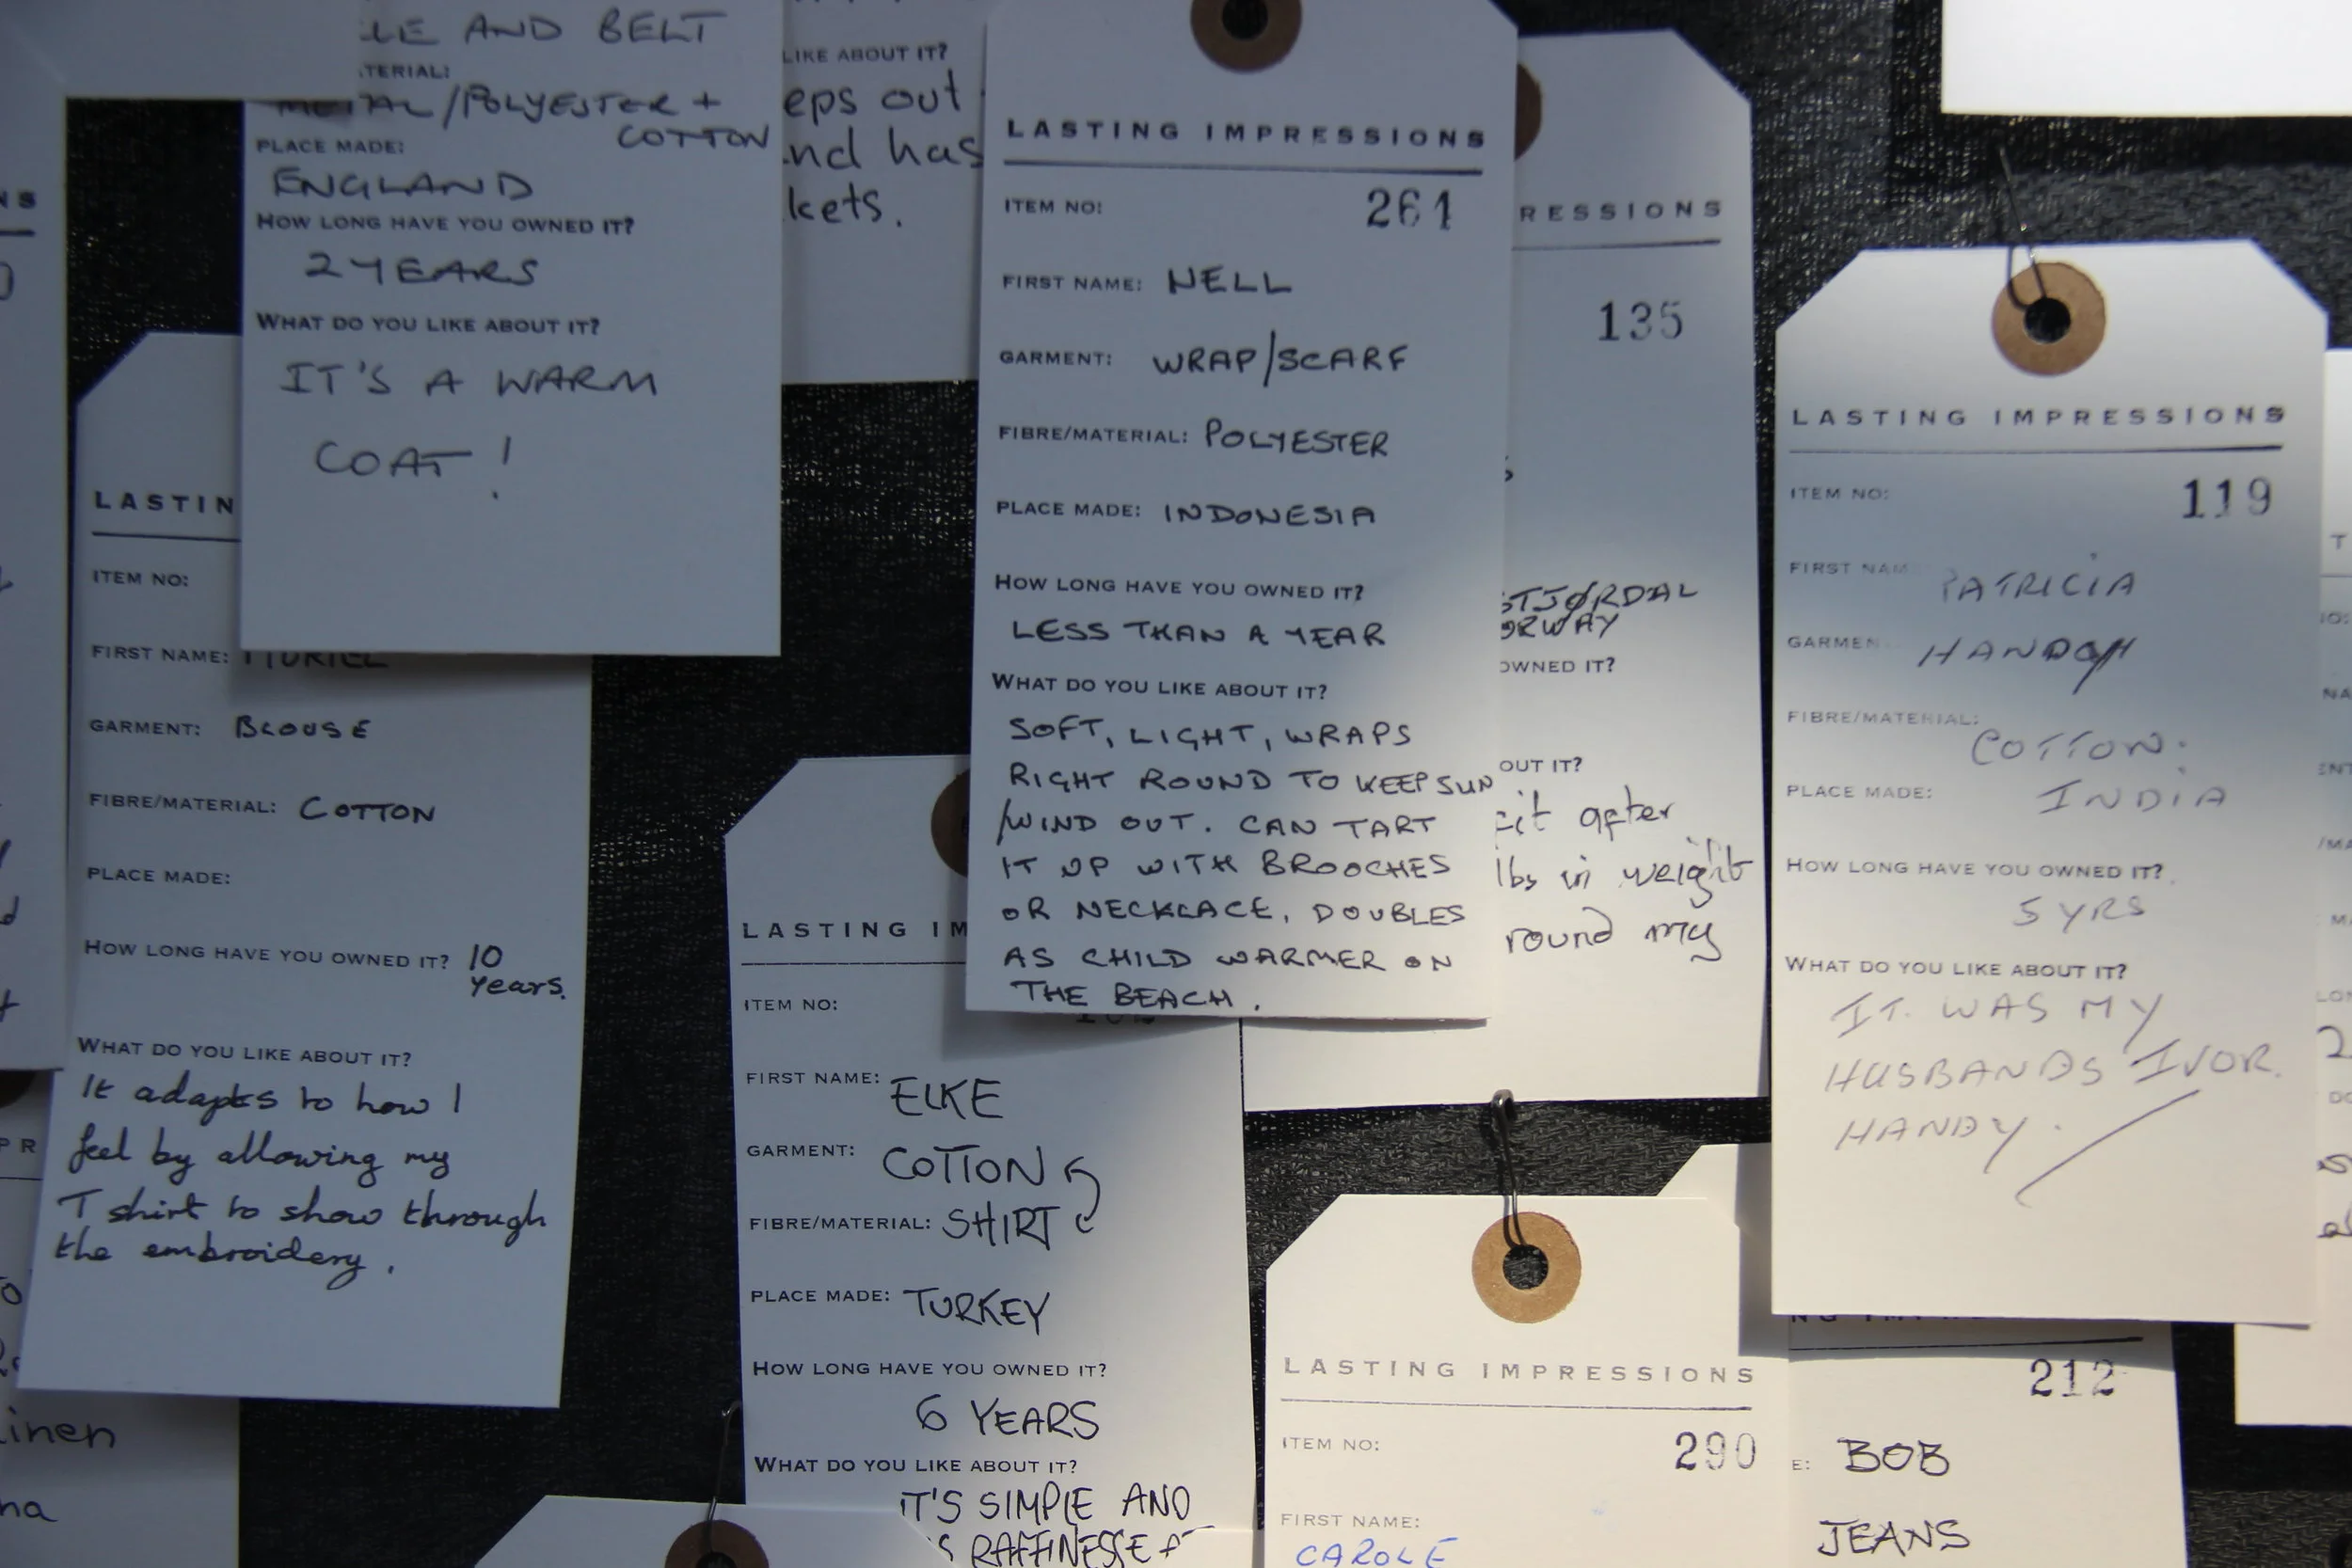 AND BELT
METAL/POLYESTER +
COTTON
PLACE MADE:
ENGLAND
HOW LONG HAVE YOU OWNED IT?
2 YEARS
WHAT DO YOU LIKE ABOUT IT?
IT'S A WARM
COAT!
LIKE ABOUT IT?
out
has
LASTING IMPRESSIONS
ITEM NO: 261
FIRST NAME: NELL
GARMENT: WRAP/SCARF
FIBRE/MATERIAL: POLYESTER
PLACE MADE: INDONESIA
HOW LONG HAVE YOU OWNED IT?
LESS THAN A YEAR
WHAT DO YOU LIKE ABOUT IT?
SOFT, LIGHT, WRAPS
RIGHT ROUND TO KEEP SUN
/WIND OUT. CAN TART
IT UP WITH BROOCHES
OR NECKLACE, DOUBLES
AS CHILD WARMER ON
THE BEACH.
135
OWNED IT?
OUT IT?
fit after
lbs in weight
round my
LASTING IMPRESSIONS
ITEM NO: 119
FIRST NAME PATRICIA
GARMEN
FIBRE/MATERIAL:
COTTON.
PLACE MADE: INDIA
HOW LONG HAVE YOU OWNED IT?
5 YRS
WHAT DO YOU LIKE ABOUT IT?
IT. WAS MY
HUSBANDS IVOR.
HANDY.
LASTIN
ITEM NO:
FIRST NAME: MURIEL
GARMENT: BLOUSE
FIBRE/MATERIAL: COTTON
PLACE MADE:
HOW LONG HAVE YOU OWNED IT? 10
years.
WHAT DO YOU LIKE ABOUT IT?
It adapts to how I
feel by allowing my
T shirt to show through
the embroidery.
LASTING IM
ITEM NO:
FIRST NAME: ELKE
GARMENT: COTTON
FIBRE/MATERIAL: SHIRT
PLACE MADE: TURKEY
HOW LONG HAVE YOU OWNED IT?
6 YEARS
WHAT DO YOU LIKE ABOUT IT?
IT'S SIMPLE AND
RAFFINESSE
LASTING IMPRESSIONS
ITEM NO: 290
FIRST NAME:
CAROLE
212
E: BOB
JEANS